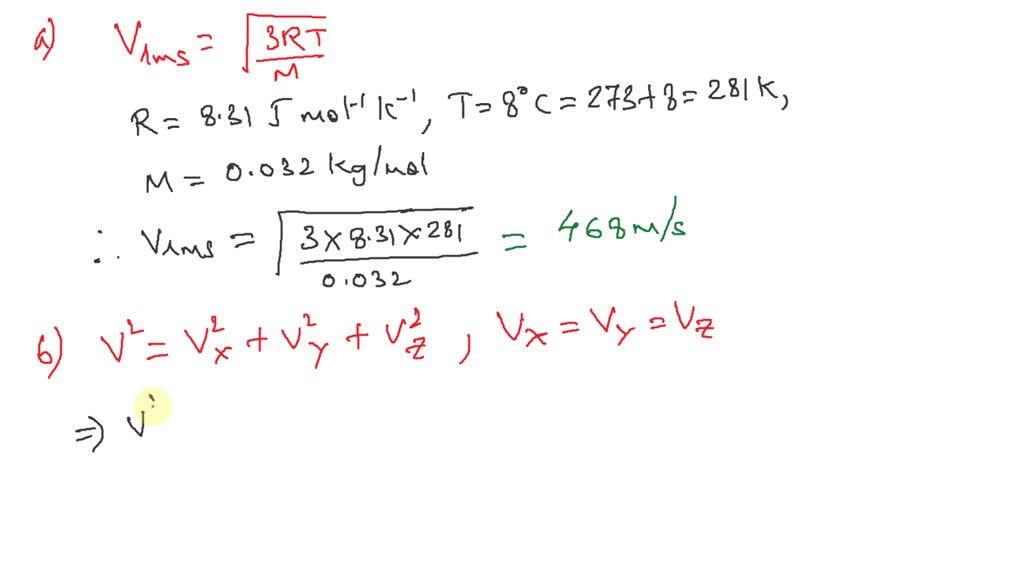 a) V₁ms = √(3RT/M)
R = 8.31 J mol⁻¹ K⁻¹, T = 8°C = 273+8 = 281 K,
M = 0.032 kg/mol
∴ V₁ms = √(3 × 8.31 × 281 / 0.032) = 468 m/s
b) V² = V²x + V²y + V²z , Vx = Vy = Vz
⇒ V